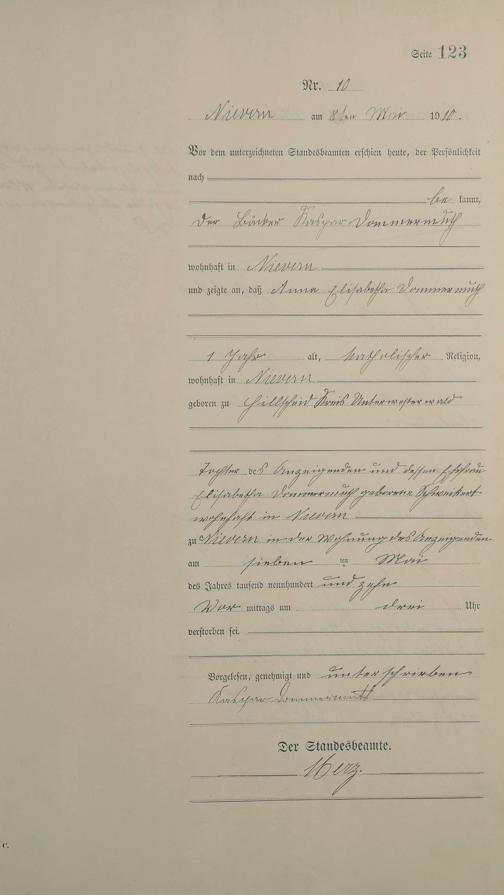 Seite 123
Nr. 10
Nievern am 8ten Mai 1910.
Vor dem unterzeichneten Standesbeamten erschien heute, der Persönlichkeit
nach
be kannt,
der Bäcker Kaspar Dommermuth
wohnhaft in Nievern
und zeigte an, daß Anna Elisabetha Dommermuth
1 Jahr alt, katholischer Religion,
wohnhaft in Nievern
geboren zu Hillscheid Kreis Unterwesterwald
Tochter des Anzeigenden und dessen Ehefrau
Elisabetha Dommermuth geborene Schweikert
wohnhaft in Nievern
zu Nievern in der Wohnung des Anzeigenden
am sieben ten Mai
des Jahres tausend neunhundert und zehn
Vor mittags um drei Uhr
verstorben sei.
Vorgelesen, genehmigt und unterschrieben
Kaspar Dommermuth
Der Standesbeamte.
Merz.
c.